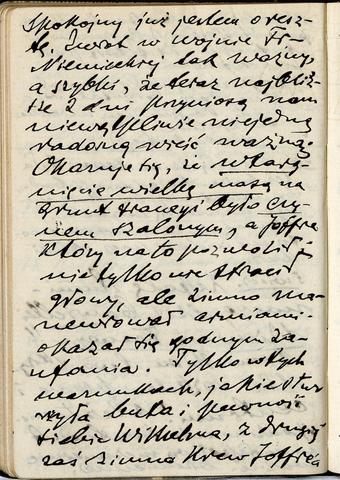 Spokojny już jestem o resz-
tę. Zwrot w wojnie Fr.
Niemieckiej tak ważny,
a szybki, że teraz najbliż-
sze 2 dni przyniosą nam
niewątpliwie niejedną
radosną wieść ważną.
Okazuje się, że wtarg-
nięcie wielką masą na
grunt Francyi było czy-
nem szalonym, a Joffre
który na to pozwolił
nie tylko nie stracił
głowy, ale zimno ma-
newrował armiami.
okazał się godnym za-
ufania. Tylko w tych
warunkach, jakie stwo
rzyła buta i pewność
siebie Wilhelma, z drugiej
zaś zimna krew Joffre'a